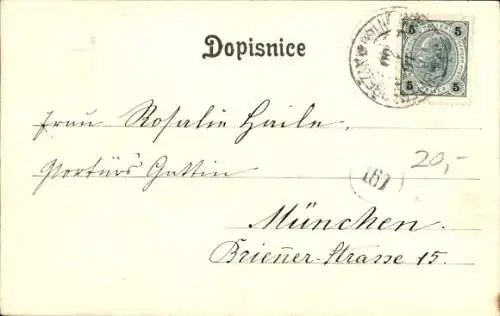 Dopisnice
5 5
5 5
Frau Rosalie Haile.
Portiérs Gattin
20,-
167
München.
Brienner-Strasse 15.